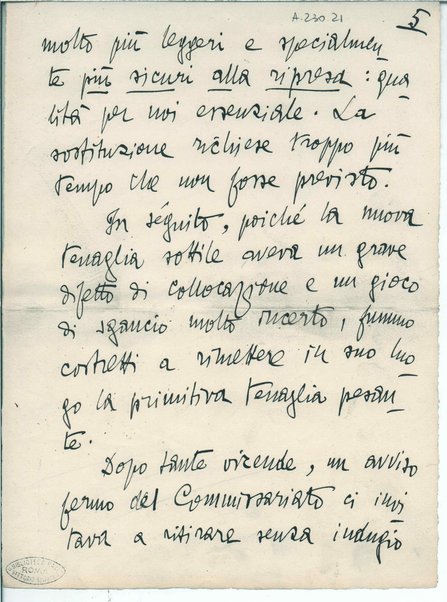 A.230 21
5
molto più leggeri e specialmen
te più sicuri alla ripresa: qua
lità per noi essenziale. La
sostituzione richiese troppo più
tempo che non fosse previsto.
In séguito, poiché la nuova
tenaglia sottile aveva un grave
difetto di collocazione e un gioco
di sgancio molto incerto, fummo
costretti a rimettere in suo luo
go la primitiva tenaglia pesan
te.
Dopo tante vicende, un avviso
fermo del Commissariato ci invi
tava a ritirare senza indugio
BIBLIOTECA
ROMA
VITTORIO